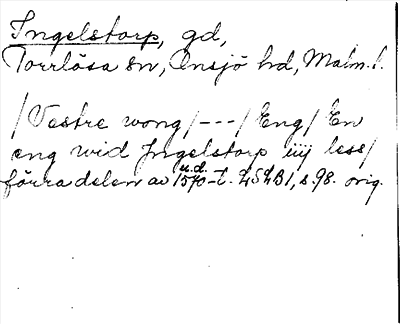 Ingelstorp, gd,
Torrlösa sn, Onsjö hd, Malm. l.
/Vestre wong/---/Eng/En
eng wid Jngelstorp iiij less/
förra delen av 1570-t. LSÄB1, s. 98. orig.
u.d.